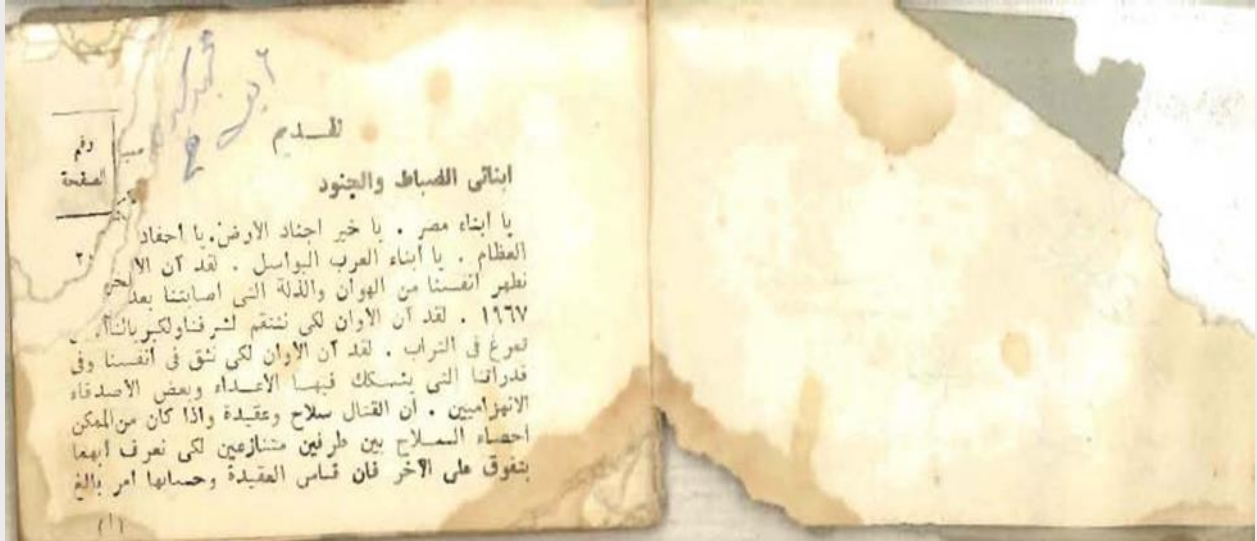 تقديم
ابنائى الضباط والجنود
يا ابناء مصر . يا خير اجناد الأرض . يا أحفاد
العظام . يا أبناء العرب البواسل . لقد آن الا
نطهر أنفسنا من الهوان والذلة التى أصابتنا بعد
١٩٦٧ . لقد آن الأوان لكى ننتقم لشرفنا ولكبريائنا
تمرغ فى التراب . لقد آن الأوان لكى نثق فى أنفسنا وفى
قدراتنا التى يشكك فيها الأعداء وبعض الأصدقاء
الانهزاميين . ان القتال سلاح وعقيدة واذا كان من الممكن
احصاء السلاح بين طرفين متنازعين لكى نعرف أيهما
يتفوق على الآخر فان قياس العقيدة وحسابها أمر بالغ
(١)
رقم
الصفحة